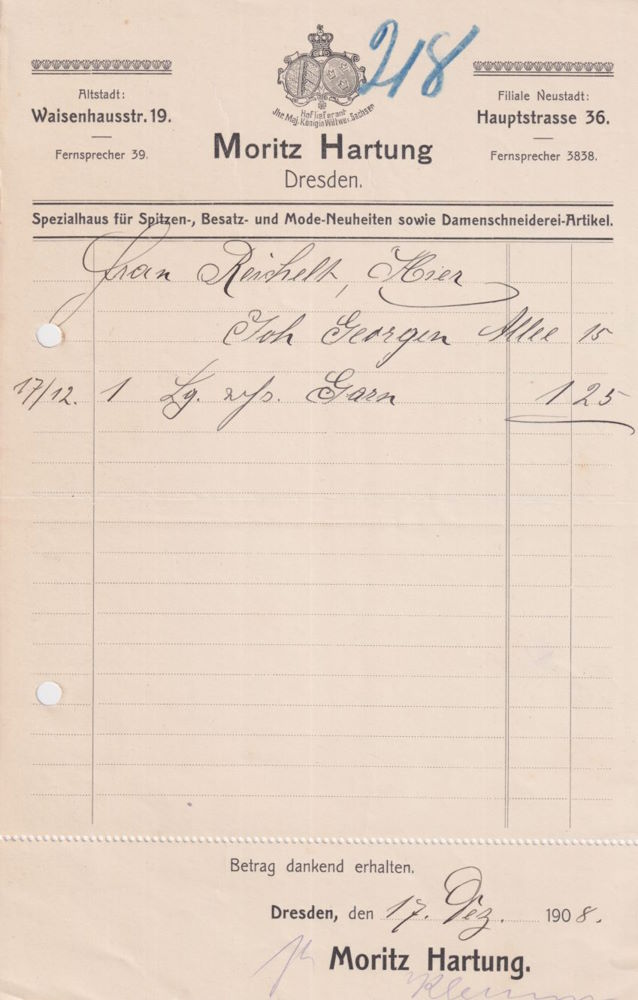 218
Altstadt:
Waisenhausstr. 19.
Fernsprecher 39.
Hoflieferant
Ihr. Maj. Königin Witwe v. Sachsen
Filiale Neustadt:
Hauptstrasse 36.
Fernsprecher 3838.
Moritz Hartung
Dresden.
Spezialhaus für Spitzen-, Besatz- und Mode-Neuheiten sowie Damenschneiderei-Artikel.
Frau Reichelt, Hier
Joh Georgen Allee 15
17/12. 1 Lg. wss. Garn 1 25
Betrag dankend erhalten.
Dresden, den 17. Dez. 1908.
Moritz Hartung.